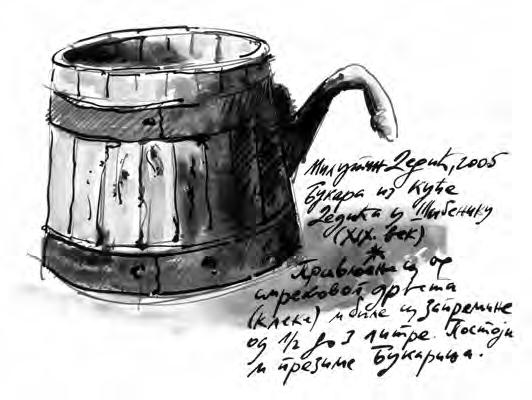 Милутин Дедић, 2005
Букара из куће
Дедића у Шибенику
(XIX. век)
*
Прављене су од
смрековог дрвета
(клеке) и биле су запремине
од 1/2 до 3 литре. Постоји
и презиме Букарица.